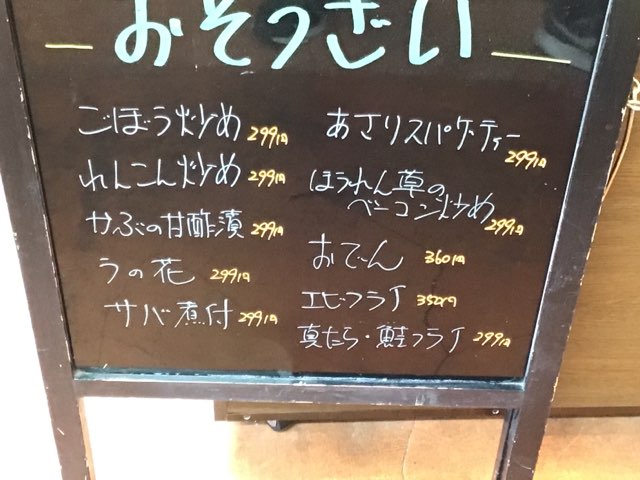 おそうざい
ごぼう炒め 299円
れんこん炒め 299円
かぶの甘酢漬 299円
うの花 299円
サバ煮付 299円
あさりスパゲッティー
299円
ほうれん草の
ベーコン炒め
299円
おでん 360円
エビフライ 350円
真たら・鮭フライ 299円